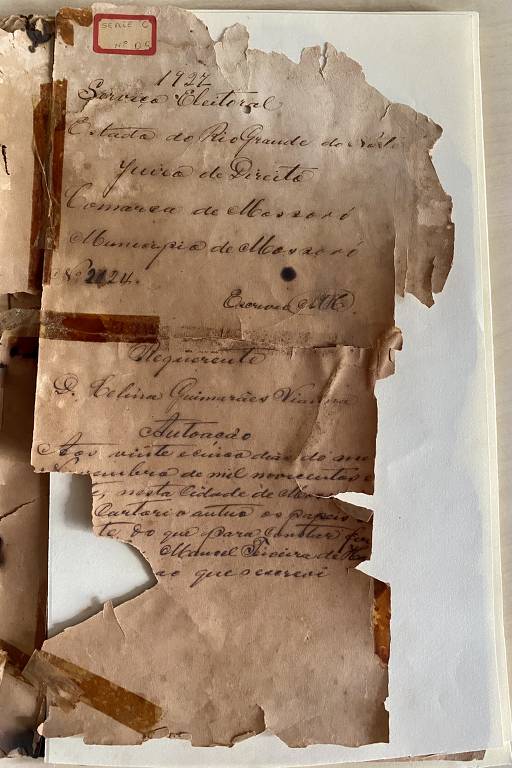 SERIE C
Nº 05
1927
Serviço Eleitoral
Estado do Rio Grande do Norte
Juizo de Direito
Comarca de Mossoró
Municipio de Mossoró
Nº 2124.
Escrivão
Requerente
D. Celina Guimarães Vianna
Autoação
Aos vinte e cinco dias do me
Novembro de mil novecentos e
e, nesta Cidade de Mo
Cartorio autuo os papeis
te, do que para constar f
Manoel Teixeira de
ão que escrevi